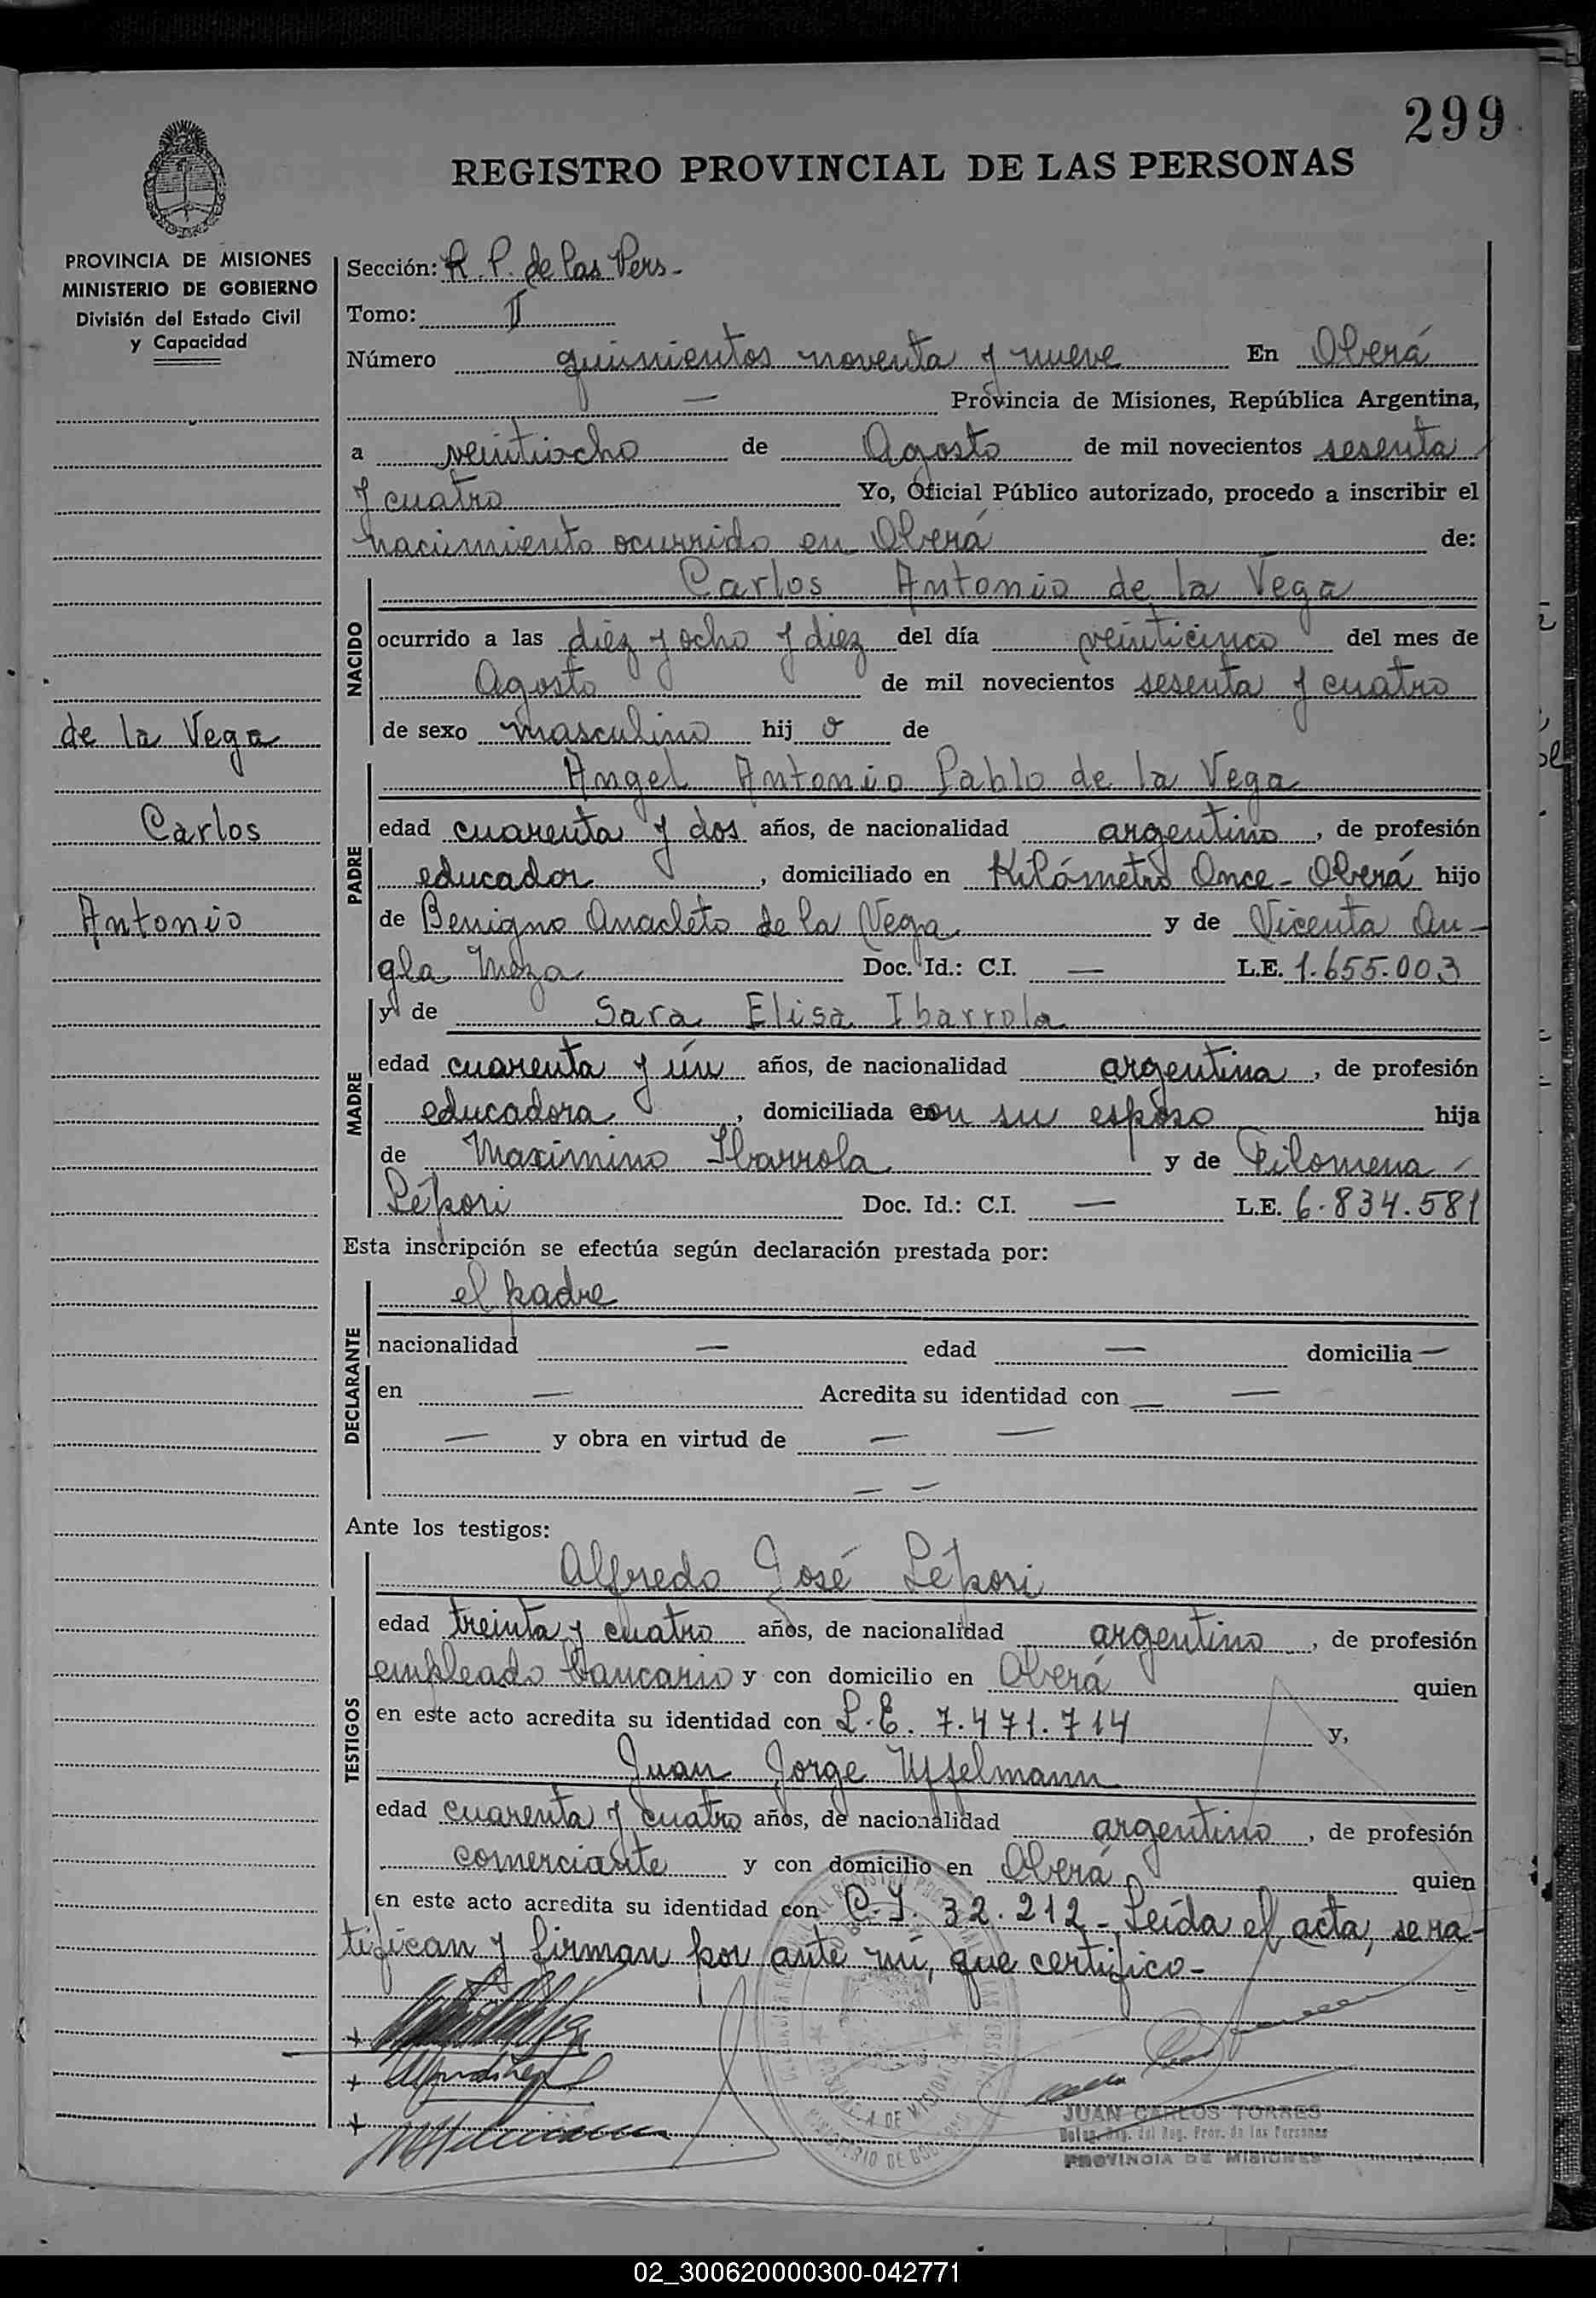 299
REGISTRO PROVINCIAL DE LAS PERSONAS
PROVINCIA DE MISIONES
MINISTERIO DE GOBIERNO
División del Estado Civil
y Capacidad
de la Vega
Carlos
Antonio
Sección: R. P. de las Pers-
Tomo: II
Número quinientos noventa y nueve En Oberá
— Provincia de Misiones, República Argentina,
a veintiocho de Agosto de mil novecientos sesenta
y cuatro Yo, Oficial Público autorizado, procedo a inscribir el
nacimiento ocurrido en Oberá de:
NACIDO
Carlos Antonio de la Vega
ocurrido a las diez y ocho y diez del día veinticinco del mes de
Agosto de mil novecientos sesenta y cuatro
de sexo masculino hij o de
PADRE
Angel Antonio Pablo de la Vega
edad cuarenta y dos años, de nacionalidad argentino, de profesión
educador, domiciliado en Kilómetro Once - Oberá hijo
de Benigno Anacleto de la Vega y de Vicenta An-
gla Doc. Id.: C.I. — L.E. 1.655.003
MADRE
y de Sara Elisa Ibarrola
edad cuarenta y ún años, de nacionalidad argentina, de profesión
educadora, domiciliada con su esposo hija
de Maximino Ibarrola y de Filomena
Lépori Doc. Id.: C.I. — L.E. 6.834.581
Esta inscripción se efectúa según declaración prestada por:
DECLARANTE
el padre
nacionalidad — edad — domicilia —
en — Acredita su identidad con — —
— y obra en virtud de — —
— —
Ante los testigos:
TESTIGOS
Alfredo José Lépori
edad treinta y cuatro años, de nacionalidad argentino, de profesión
empleado bancario y con domicilio en Oberá quien
en este acto acredita su identidad con L.E. 7.471.714 y,
Juan Jorge Uffelmann
edad cuarenta y cuatro años, de nacionalidad argentino, de profesión
comerciante y con domicilio en Oberá quien
en este acto acredita su identidad con C.I. 32.212 - Leída el acta, se ra-
tifican y firman por ante mí, que certifico-
JUAN CARLOS TORRES
PROVINCIA DE MISIONES
02_300620000300-042771